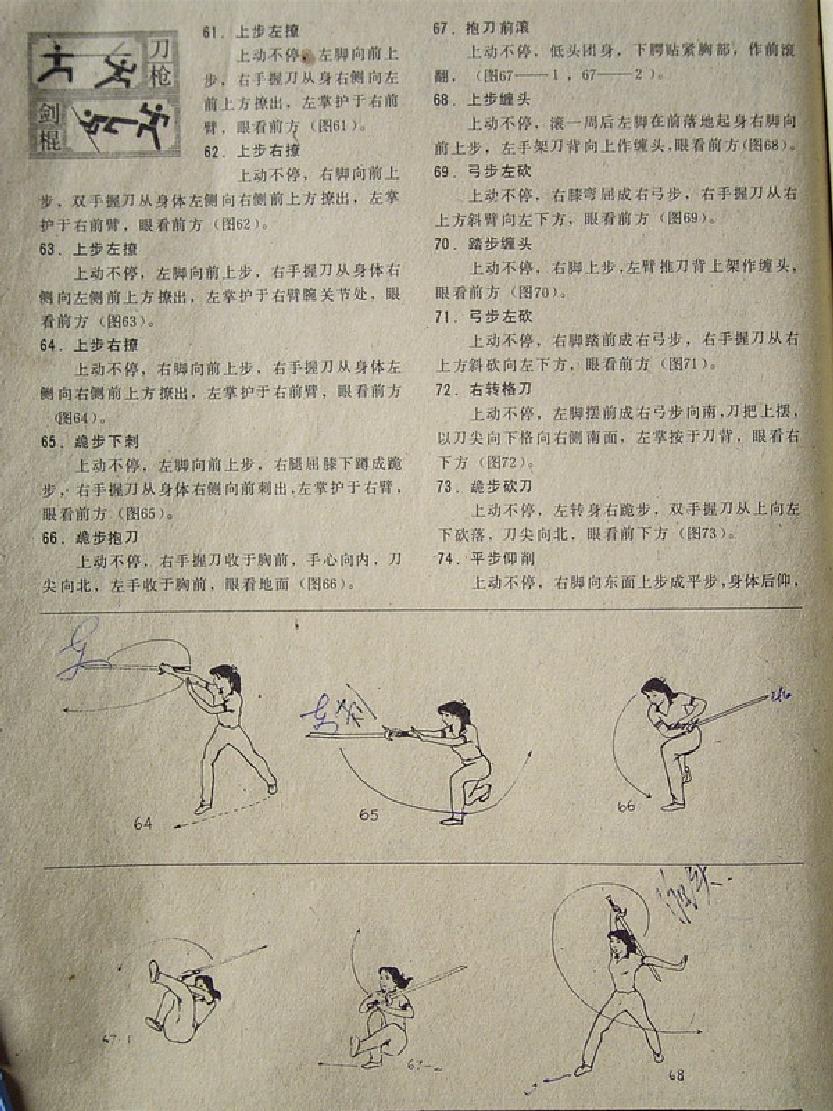 刀枪
剑棍
61．上步左撩
上动不停，左脚向前上
步，右手握刀从身右侧向左
前上方撩出，左掌护于右前
臂，眼看前方（图61）。
62．上步右撩
上动不停，右脚向前上
步，双手握刀从身体左侧向右侧前上方撩出，左掌
护于右前臂，眼看前方（图62）。
63．上步左撩
上动不停，左脚向前上步，右手握刀从身体右
侧向左侧前上方撩出，左掌护于右臂腕关节处，眼
看前方（图63）。
64．上步右撩
上动不停，右脚向前上步，右手握刀从身体左
侧向右侧前上方撩出，左掌护于右前臂，眼看前方
（图64）。
65．跪步下刺
上动不停，左脚向前上步，右腿屈膝下蹲成跪
步，右手握刀从身体右侧向前刺出，左掌护于右臂，
眼看前方（图65）。
66．跪步抱刀
上动不停，右手握刀收于胸前，手心向内，刀
尖向北，左手收于胸前，眼看地面（图66）。
67．抱刀前滚
上动不停，低头团身，下腭贴紧胸部，作前滚
翻，（图67——1，67——2）。
68．上步缠头
上动不停，滚一周后左脚在前落地起身右脚向
前上步，左手架刀背向上作缠头，眼看前方（图68）。
69．弓步左砍
上动不停，右膝弯屈成右弓步，右手握刀从右
上方斜臂向左下方，眼看前方（图69）。
70．踏步缠头
上动不停，右脚上步，左臂推刀背上架作缠头，
眼看前方（图70）。
71．弓步左砍
上动不停，右脚踏前成右弓步，右手握刀从右
上方斜砍向左下方，眼看前方（图71）。
72．右转格刀
上动不停，左脚摆前成右弓步向南，刀把上摆，
以刀尖向下格向右侧南面，左掌按于刀背，眼看右
下方（图72）。
73．跪步砍刀
上动不停，左转身右跪步，双手握刀从上向左
下砍落，刀尖向北，眼看前下方（图73）。
74．平步仰削
上动不停，右脚向东面上步成平步，身体后仰，
64
65
66
67-1
67-2
68